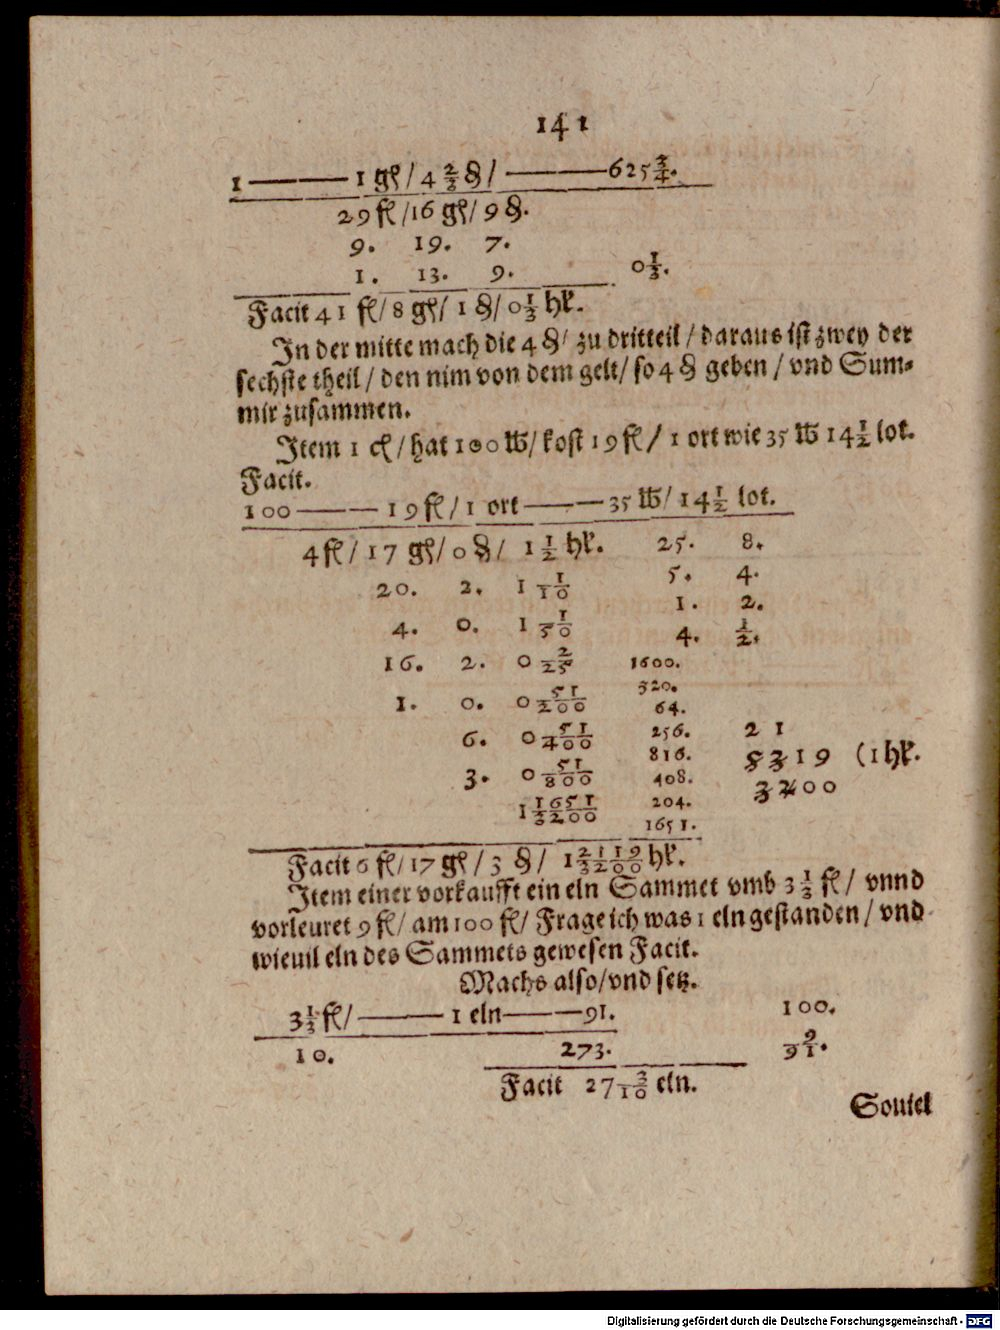 141
1 ——— 1 gl / 4 2/3 ₰ / ——— 625 3/4.
29 fl / 16 gl / 9 ₰.
9. 19. 7.
1. 13. 9. 0 1/3.
Facit 41 fl / 8 gl / 1 ₰ / 0 1/3 hlr.
In der mitte mach die 4 ₰ / zu dritteil / daraus ist zwey der
sechste theil / den nim von dem gelt / so 4 ₰ geben / vnd Sum-
mir zusammen.
Item 1 cl / hat 100 ℔ / kost 19 fl / 1 ort wie 35 ℔ 14 1/2 lot.
Facit.
100 ——— 19 fl / 1 ort ——— 35 ℔ / 14 1/2 lot.
4 fl / 17 gl / 0 ₰ / 1 1/2 hlr. 25. 8.
20. 2. 1 1/10 5. 4.
1. 2.
4. 0. 1 1/50 4. 1/2.
16. 2. 0 2/25 1600.
320.
1. 0. 0 51/200 64.
6. 0 51/400 256. 2 1
816. 5319 (1 hlr.
3. 0 51/800 408. 3200
1 1651/3200 204.
1651.
Facit 6 fl / 17 gl / 3 ₰ / 1 2119/3200 hlr.
Item einer vorkaufft ein eln Sammet vmb 3 1/3 fl / vnnd
vorleuret 9 fl / am 100 fl / Frage ich was 1 eln gestanden / vnd
wieuil eln des Sammets gewesen Facit.
Machs also / vnd setz.
3 1/3 fl / ——— 1 eln ——— 91. 100.
9
10. 273. 91.
Facit 27 3/10 eln.
Souiel
Digitalisierung gefördert durch die Deutsche Forschungsgemeinschaft - DFG